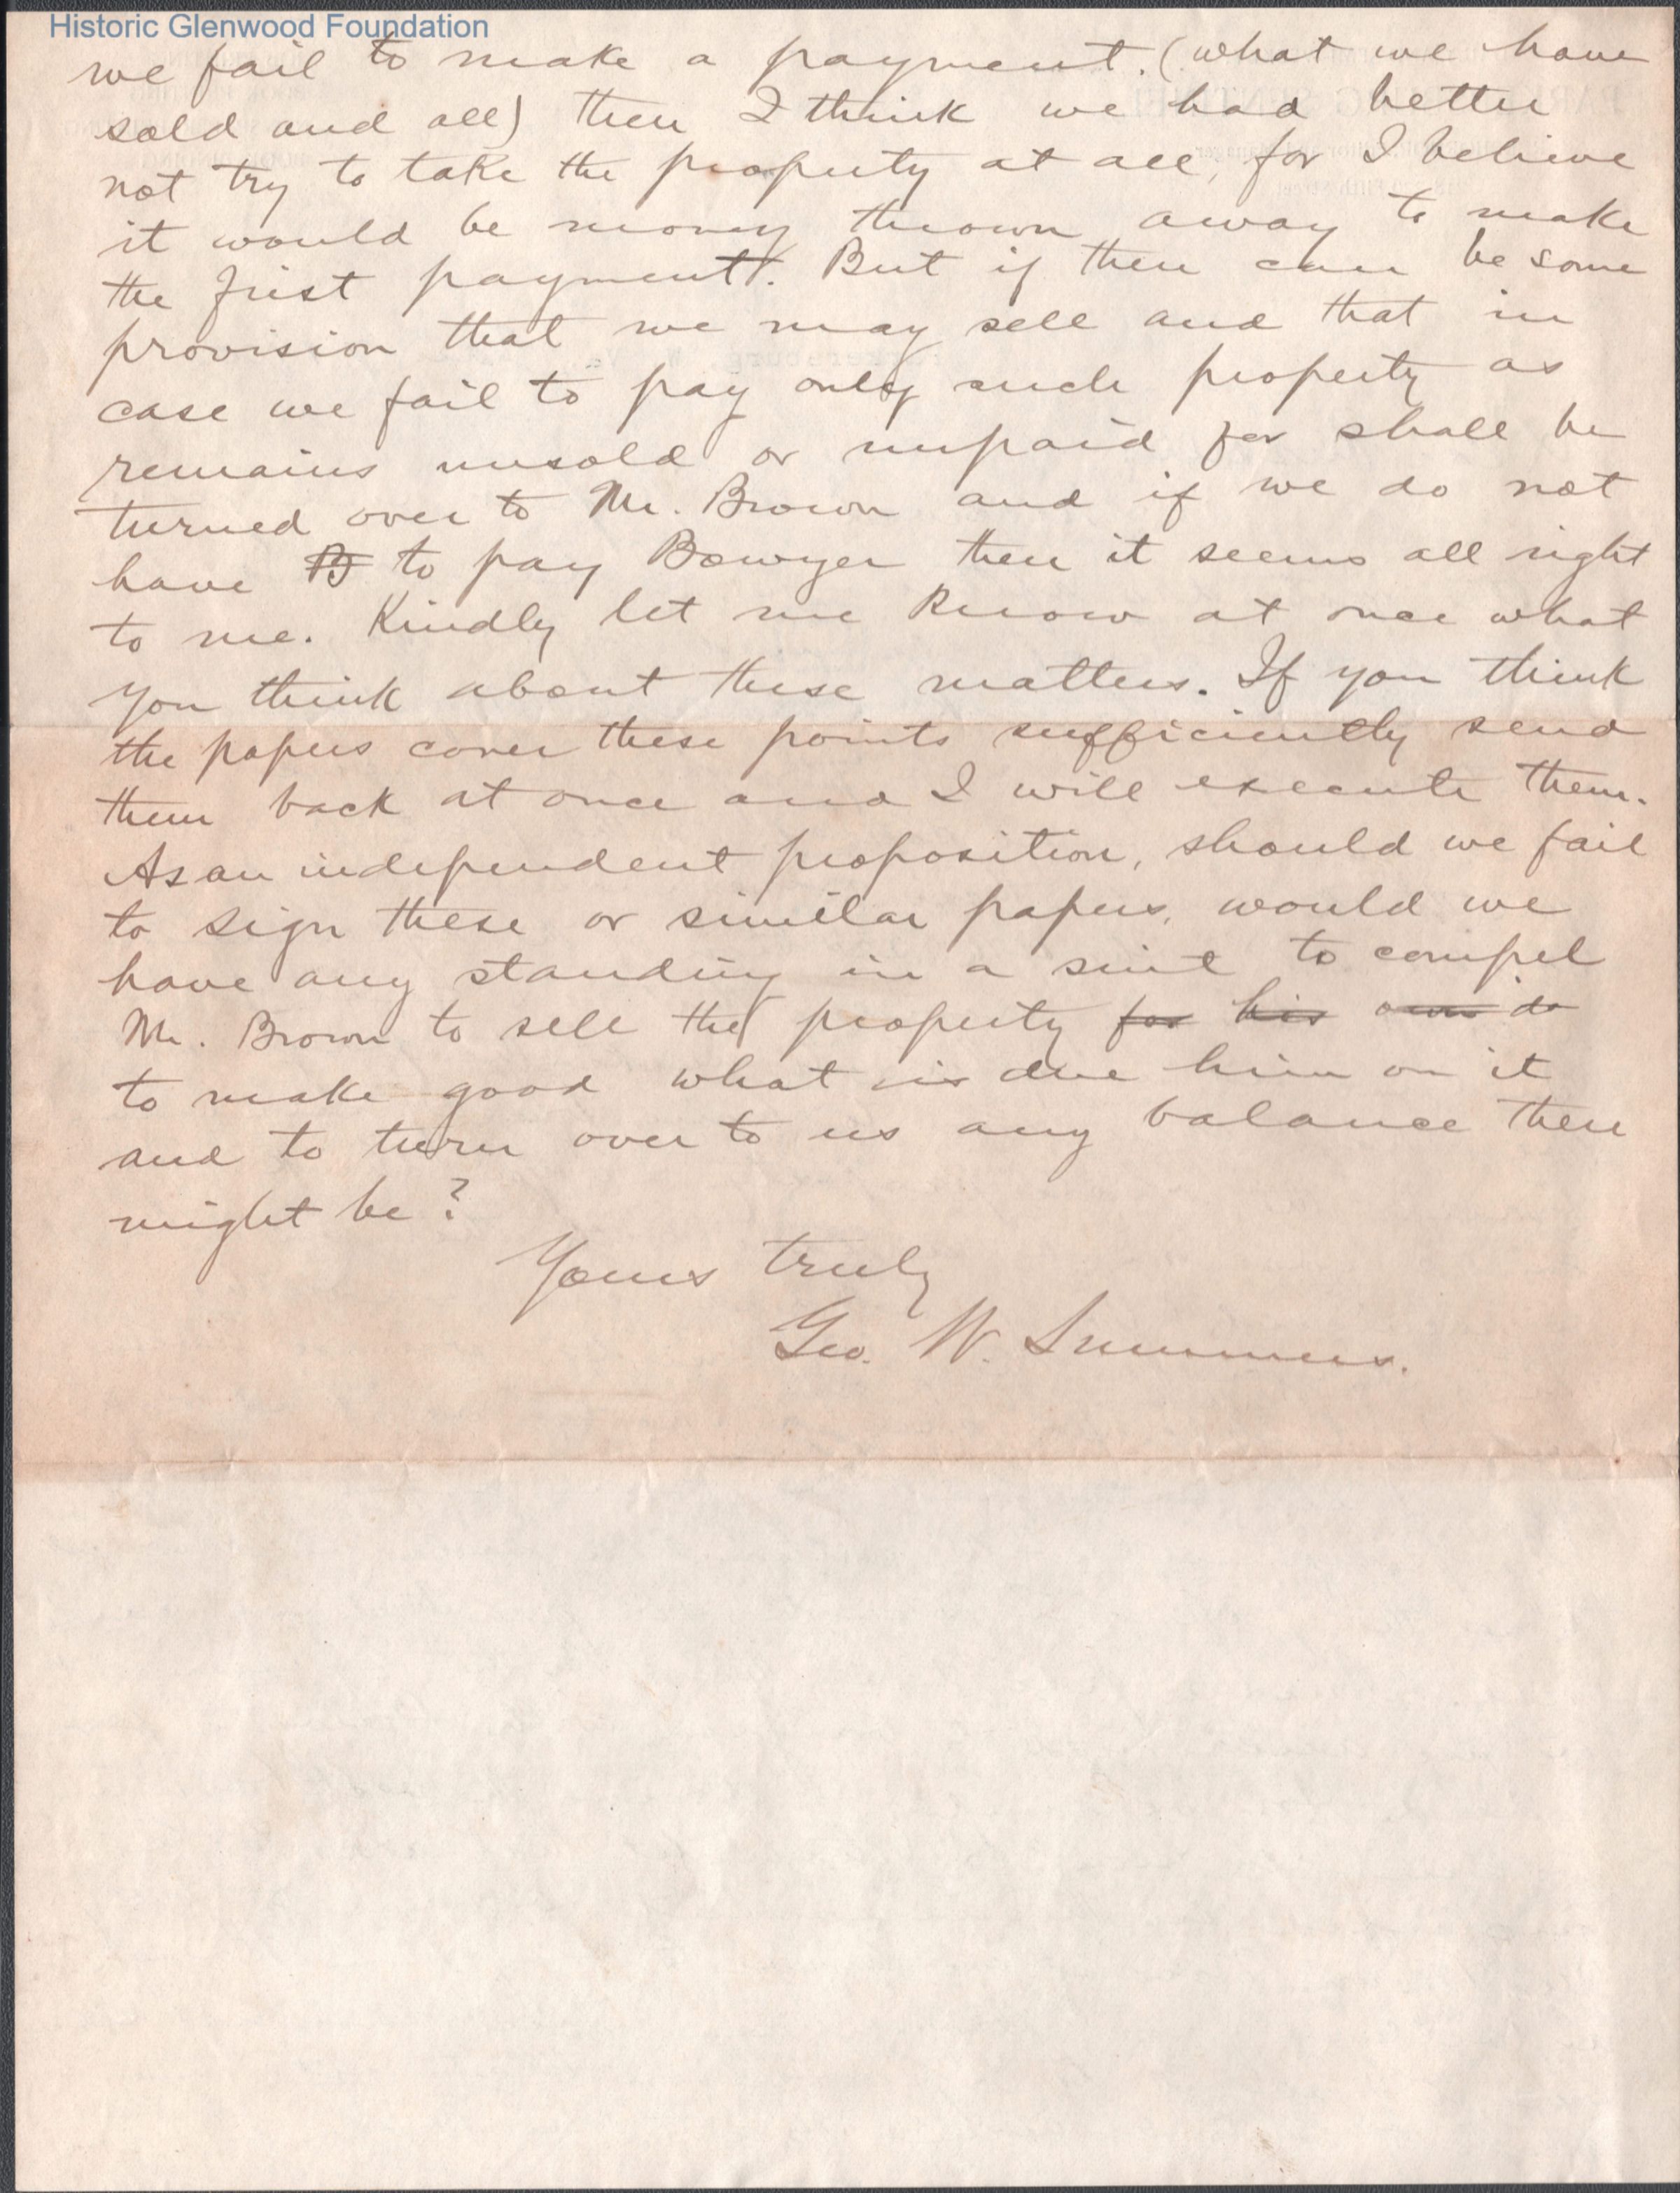 Historic Glenwood Foundation
we fail to make a payment. (what we have
sold and all) then I think we had better
not try to take the property at all, for I believe
it would be money thrown away to make
the first payment. But if there can be some
provision that we may sell and that in
case we fail to pay only such property as
remains unsold or unpaid for shall be
turned over to Mr. Brown and if we do not
have B to pay Bowyer then it seems all right
to me. Kindly let me know at once what
you think about these matters. If you think
the papers cover these points sufficiently send
them back at once and I will execute them.
As an independent proposition, should we fail
to sign these or similar papers, would we
have any standing in a suit to compel
Mr. Brown to sell the property for his own do
to make good what is due him on it
and to turn over to us any balance there
might be?
Yours truly
Geo. W. Summers.